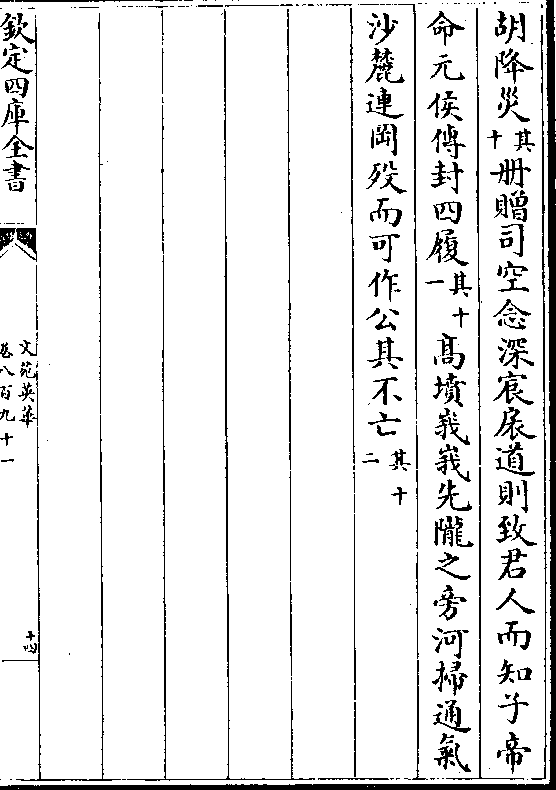 胡降災其十册贈司空念深宸扆道則致君人而知子帝
命元侯傳封四履其十一高墳峩峩先隴之旁河掃通氣
沙麓連岡殁而可作公其不亡其十二
欽定四庫全書
文苑英華
卷八百九十一
十四